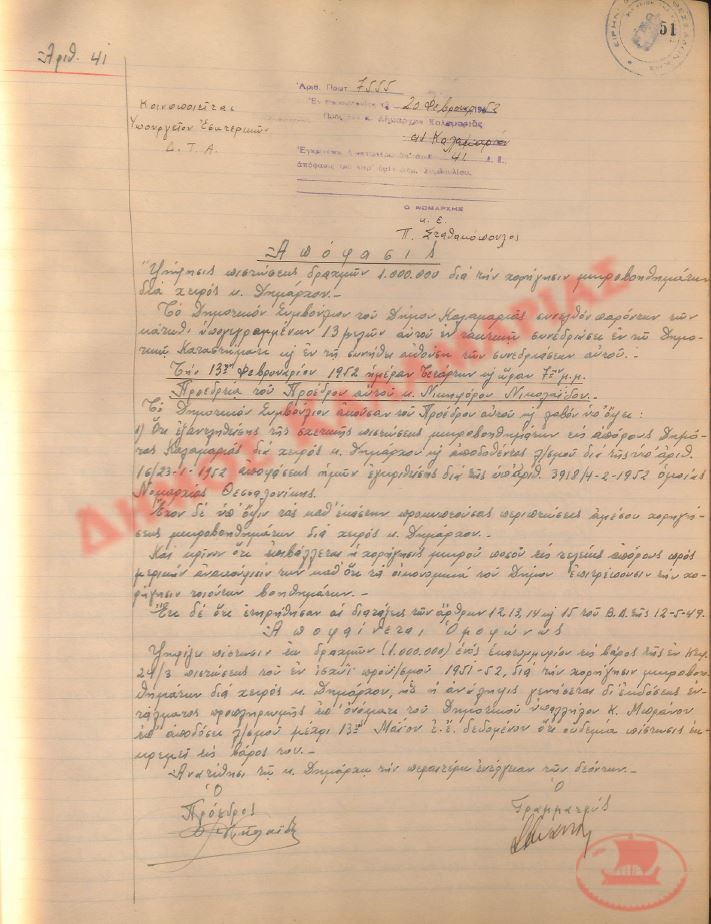 51
Ἀριθ. 41
Ἀριθ. Πρωτ. 7555
20 Φεβρουαρ. 1952
Κοινοποιεῖται
Πρὸς τὸν κ. Δήμαρχον Καλαμαριᾶς
Ὑπουργεῖον Ἐσωτερικῶν
εἰς Καλαμαριάν
Δ. Τ. Α.
41
Ο ΝΟΜΑΡΧΗΣ
κ. ε.
Π. Σταθακόπουλος
Ἀπόφασις
Ψήφισις πιστώσεως δραχμῶν 1.000.000 διὰ τὴν χορήγησιν μικροβοηθημάτων
διὰ χειρὸς κ. Δημάρχου.-
Τὸ Δημοτικὸν Συμβούλιον τοῦ Δήμου Καλαμαριᾶς συνελθὸν παρόντων τῶν
κάτωθι ὑπογεγραμμένων 13 μελῶν αὐτοῦ ἐν τακτικῇ συνεδριάσει ἐν τῷ Δημο-
τικῷ Καταστήματι κ ἐν τῇ συνήθει αἰθούσῃ τῶν συνεδριάσεων αὐτοῦ.-
Τὴν 13ην Φεβρουαρίου 1952 ἡμέραν Τετάρτην κ ὥραν 7ην μ.μ.
Προεδρεία τοῦ Προέδρου αὐτοῦ κ. Νικηφόρου Νικολαΐδου.-
Τὸ Δημοτικὸν Συμβούλιον ἀκοῦσαν τοῦ Προέδρου αὐτοῦ κ λαβὸν ὑπ' ὄψει:
1) Ὅτι ἐξαντληθείσης τῆς σχετικῆς πιστώσεως μικροβοηθημάτων εἰς ἀπόρους Δημό-
τας Καλαμαριᾶς διὰ χειρὸς κ. Δημάρχου κ ἀποδοθέντος λ/σμοῦ διὰ τῆς ὑπ' ἀριθ.
16/23-1-1952 ἀποφάσεως ἡμῶν ἐγκριθείσης διὰ τῆς ὑπ' ἀριθ. 3918/4-2-1952 ὁμοίας
Νομαρχίας Θεσσαλονίκης.
Ἔχον δὲ ὑπ' ὄψιν τὰς καθ' ἑκάστην προκυπτούσας περιπτώσεις ἀμέσου χορηγή-
σεως μικροβοηθημάτων διὰ χειρὸς κ. Δημάρχου.-
Καὶ κρῖνον ὅτι ἐπιβάλλεται ἡ χορήγησις μικροῦ ποσοῦ εἰς τελείως ἀπόρους πρὸς
μερικὴν ἀνακούφισίν των καθ' ὅτι τὰ οἰκονομικὰ τοῦ Δήμου ἐπιτρέπουσιν τὴν χο-
ρήγησιν τοιούτων βοηθημάτων.-
Ἔτι δὲ ὅτι ἐτηρήθησαν αἱ διατάξεις τῶν ἄρθρων 12, 13, 14 κ 15 τοῦ Β.Δ. τῆς 12-5-49.
Ἀποφαίνεται Ὁμοφώνως
Ψηφίζει πίστωσιν ἐκ δραχμῶν (1.000.000) ἑνὸς ἑκατομμυρίου εἰς βάρος τῆς ἐν Κεφ.
24/3 πιστώσεως τοῦ ἐν ἰσχύϊ προϋ/σμοῦ 1951-52, διὰ τὴν χορήγησιν μικροβοη-
θημάτων διὰ χειρὸς κ. Δημάρχου, ἧς ἡ ἀνάληψις γενήσεται δι' ἐκδόσεως ἐν-
τάλματος προπληρωμῆς ἐπ' ὀνόματι τοῦ Δημοτικοῦ ὑπαλλήλου Κ.
ἐπ' ἀποδόσει λ/σμοῦ μέχρι 13ης Μαΐου ἐ.ἔ. δεδομένου ὅτι οὐδεμία πίστωσις ἐκ-
κρεμεῖ εἰς βάρος του.-
Ἀνατίθησι τῷ κ. Δημάρχῳ τὴν περαιτέρω ἐνέργειαν τῶν δεόντων.-
Ὁ Ὁ
Πρόεδρος Γραμματεύς
ΔΗΜΟΣ ΚΑΛΑΜΑΡΙΑΣ